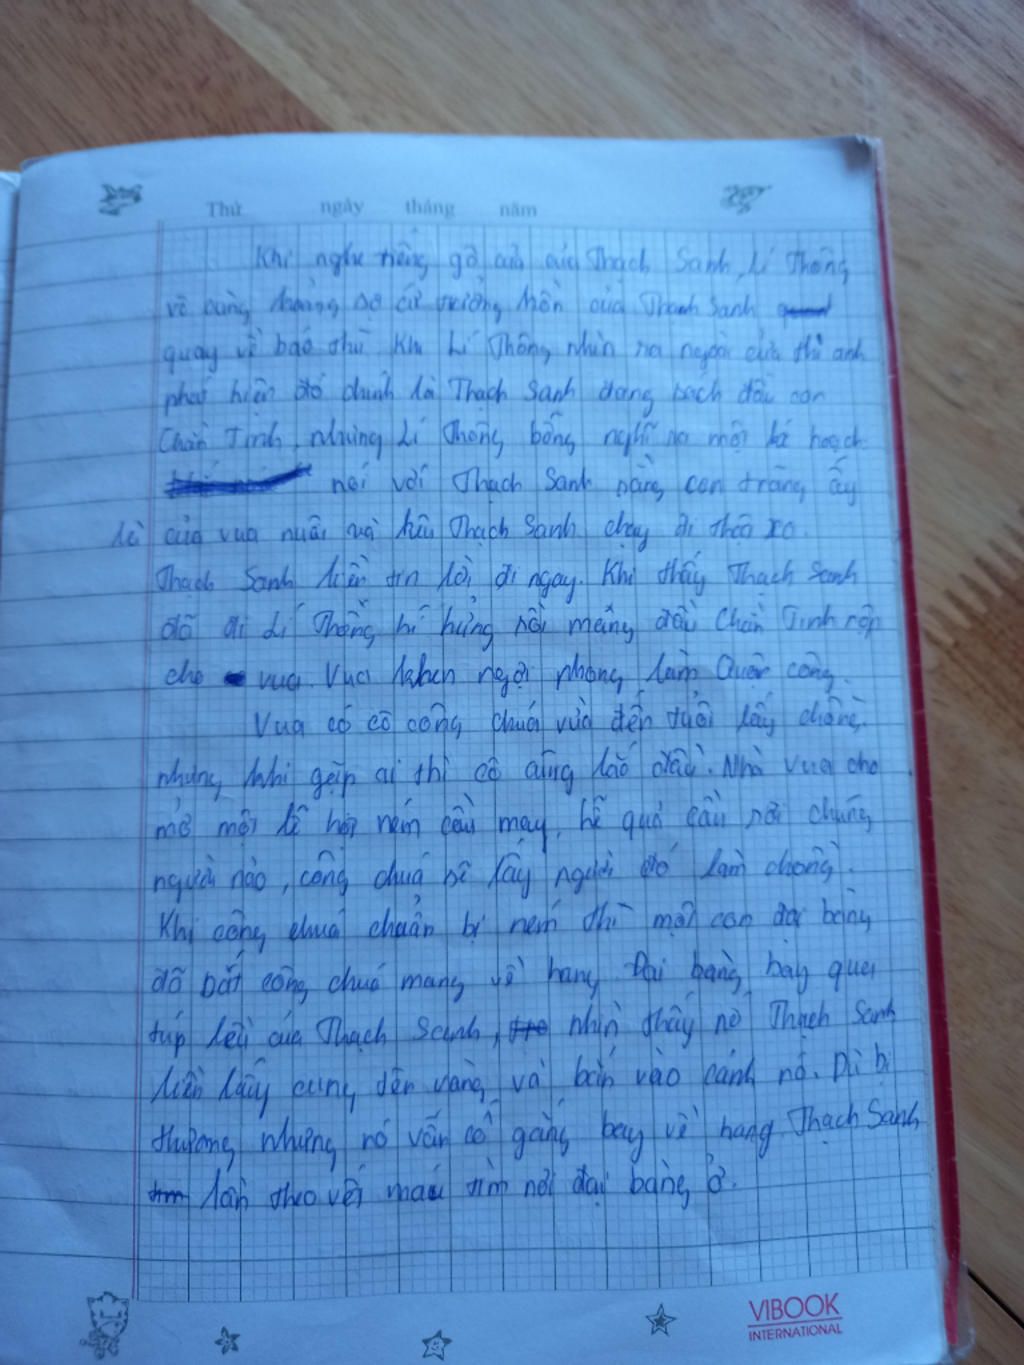 Thứ ngày tháng năm
Khi nghe tiếng gõ cửa của Thạch Sanh, Lí Thông
vô cùng hoảng sợ cứ tưởng hồn của Thạch Sanh
quay về báo thù. Khi Lí Thông nhìn ra ngoài cửa thì anh
phát hiện đó chính là Thạch Sanh đang xách đầu con
Chằn Tinh, nhưng Lí Thông bỗng nghĩ ra một kế hoạch
nói với Thạch Sanh rằng con trăng ấy
là của vua nuôi và kêu Thạch Sanh chạy đi thật xa.
Thạch Sanh liền tin lời đi ngay. Khi thấy Thạch Sanh
đã đi Lí Thông hí hửng rồi mang đầu Chằn Tinh nộp
cho vua. Vua khen ngợi phong làm Quận công.
Vua có cô công chúa vừa đến tuổi lấy chồng
nhưng khi gặp ai thì cô cũng lắc đầu. Nhà vua cho
mở một lễ hội ném cầu may, hễ quả cầu rơi chúng
người nào, công chúa sẽ lấy người đó làm chồng.
Khi công chúa chuẩn bị ném thì một con đại bàng
đã bắt công chúa mang về hang. Đại bàng bay qua
túp lều của Thạch Sanh, nhìn thấy nó Thạch Sanh
liền lấy cung tên vàng và bắn vào cánh nó. Dù bị
thương nhưng nó vẫn cố gắng bay về hang. Thạch Sanh
lần theo vết máu tìm nơi đại bàng ở.
VIBOOK
INTERNATIONAL